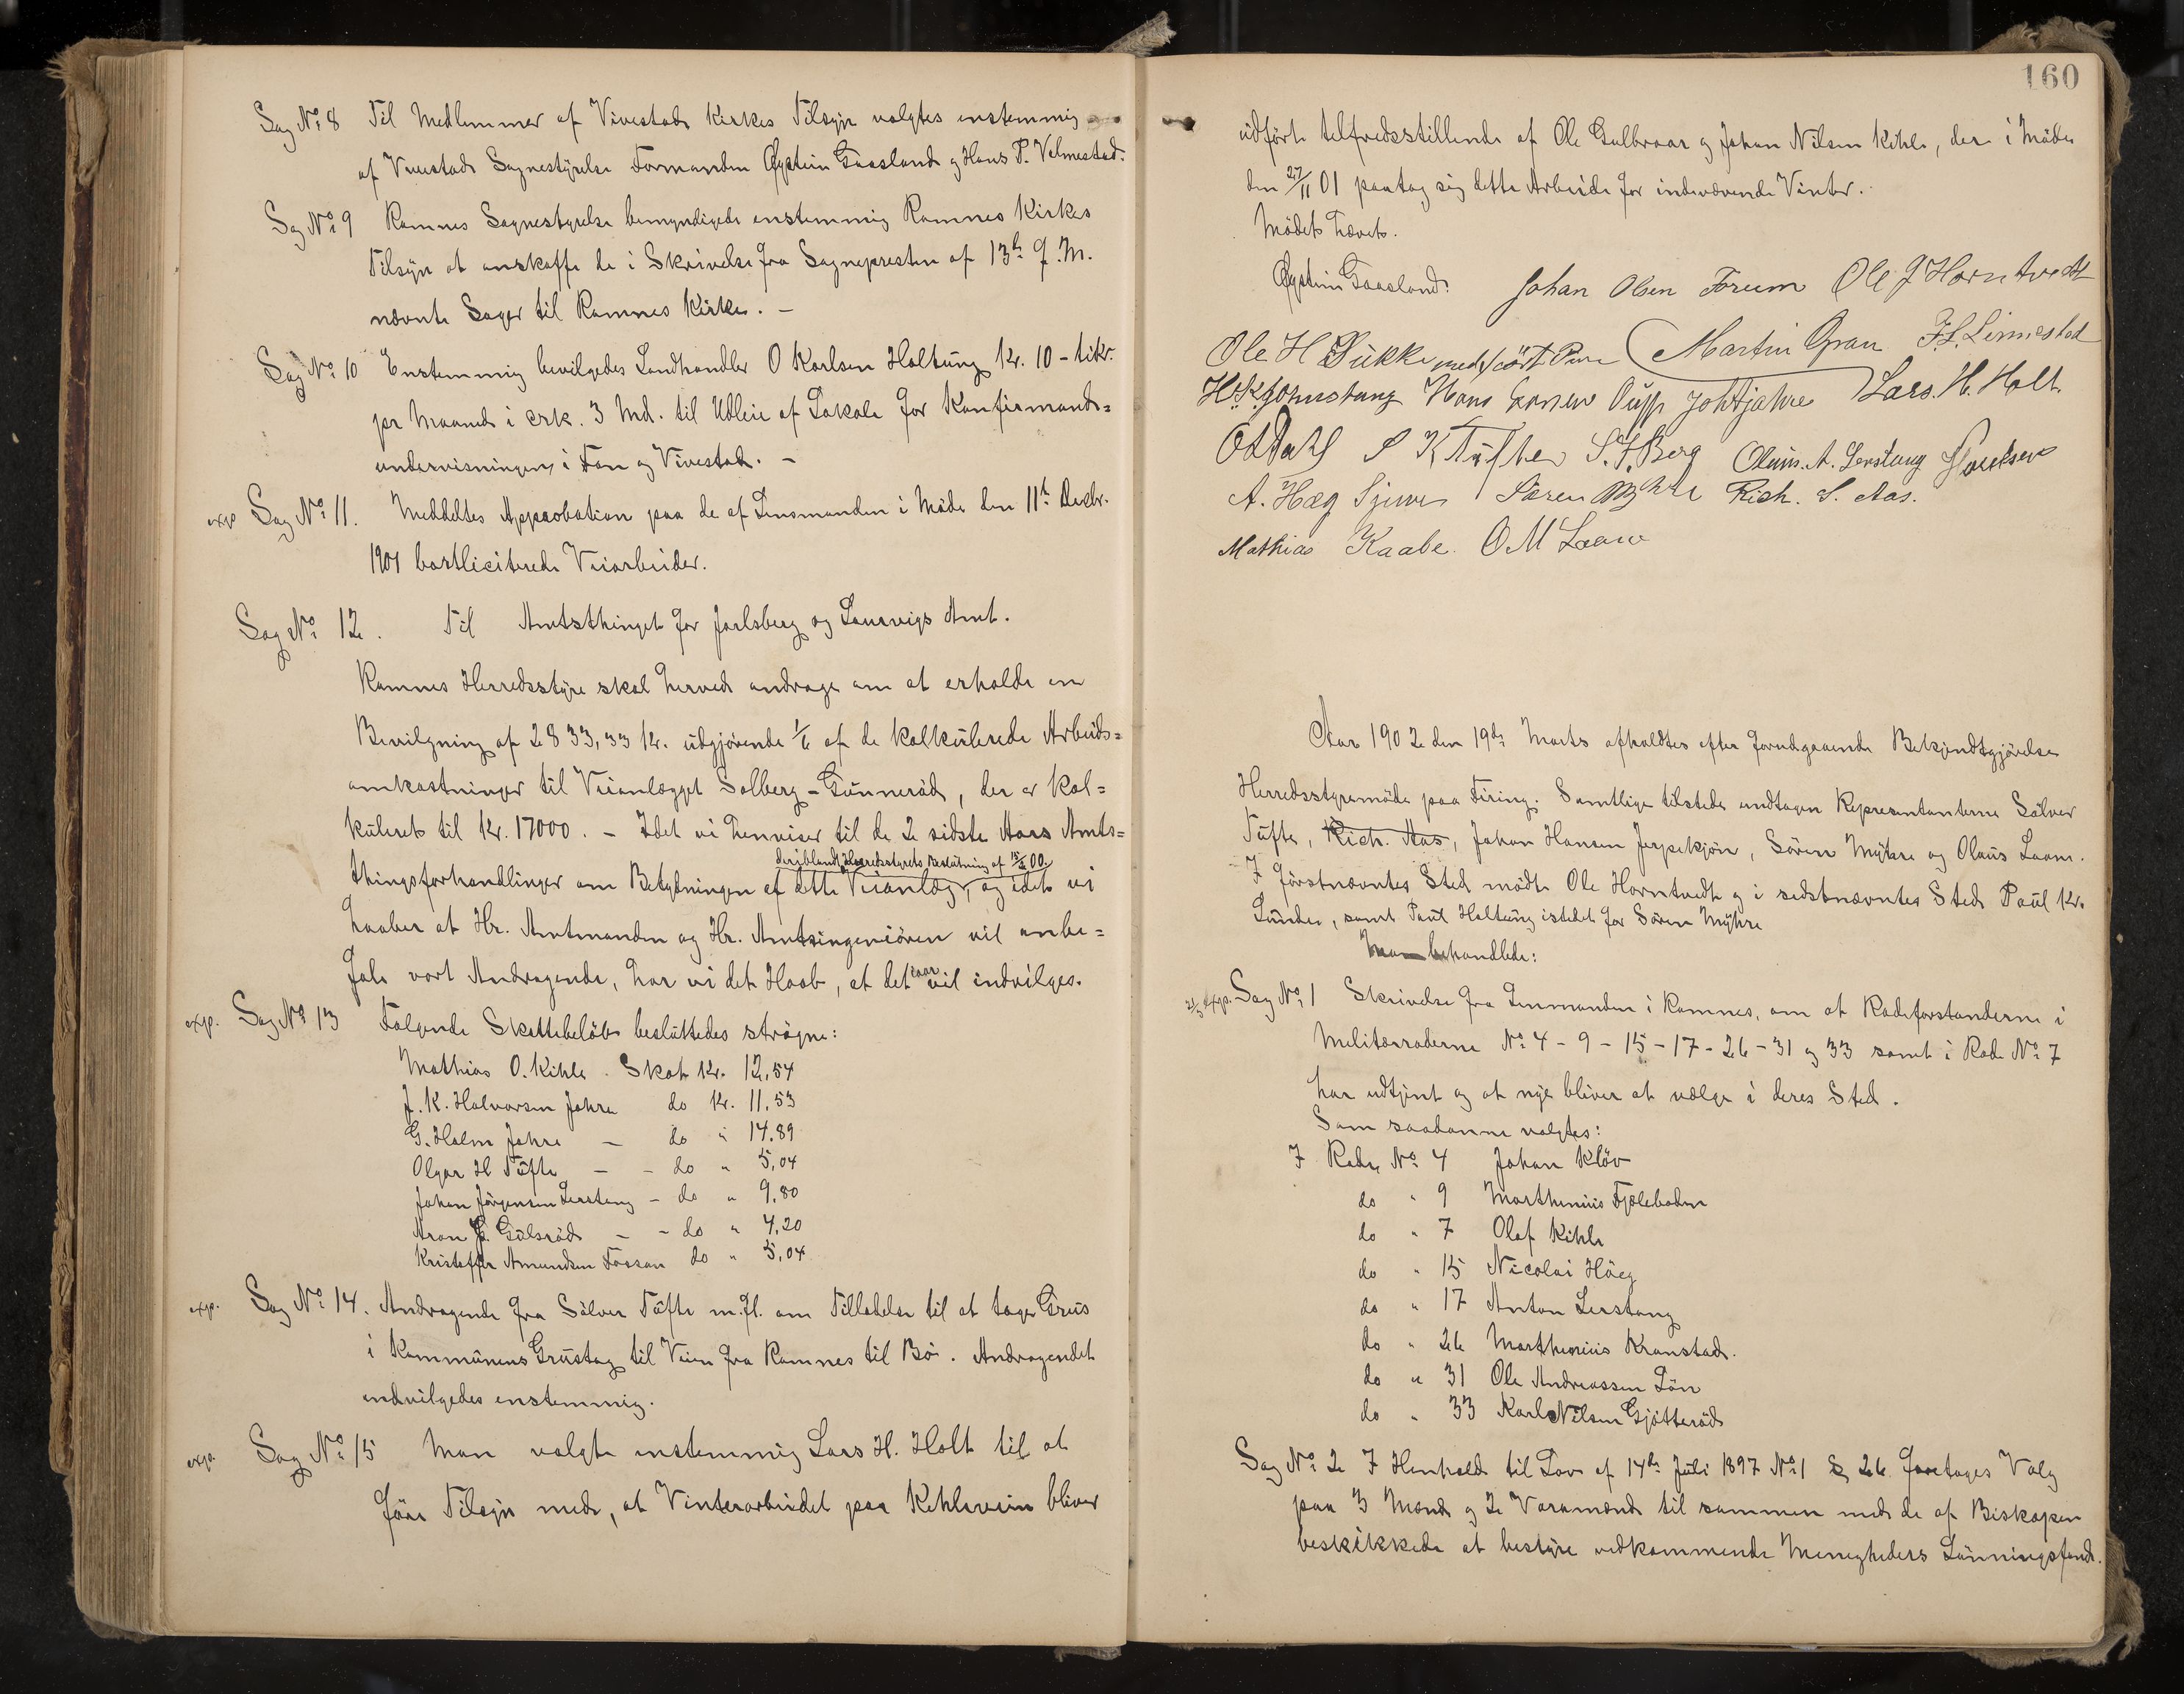 Sag No 8 Til Medlemmer af Vivestads Kirkes Tilsyn valgtes enstemmig
af Vivestads Sognestyrelse Formanden Øystein Gaasland og Hans P. Velmestad.
Sag No 9 Ramnes Sognestyrelse bemyndigede enstemmig Ramnes Kirkes
Tilsyn at anskaffe de i Skrivelse fra Sognepresten af 13de f. M.
nævnte Sager til Ramnes Kirke. -
Sag No 10 Enstemmig bevilgedes Landhandler O Karlsen Holtung Kr. 10 - tikr.
pr Maaned i crk. 3 Md. til Udleie af Lokale for Konfirmands=
undervisningen i Fon og Vivestad. -
exp Sag No 11. Meddeltes Approbation paa de af Lensmanden i Møde den 11te Decbr.
1901 bortliciterede Veiarbeider.
Sag No 12. Til Amtsthinget for Jarlsberg og Laurvigs Amt.
Ramnes Herredsstyre skal herved andrage om at erholde en
Bevilgning af 2833,33 Kr. udgjørende 1/6 af de kalkulerede Arbeids=
omkostninger til Veianlægget Solberg - Gunnerød, der er kal=
kuleret til Kr. 17000. - Idet vi henviser til de 2 sidste Aars Amts=
deriblandt Herredsstyrets Beslutning af 15/2 00.
thingsforhandlinger om Betydningen af dette Veianlæg, og idet vi
haaber at Hr. Amtmanden og Hr. Amtsingeniøren vil anbe=
fale vort Andragende, har vi det Haab, at det iaar vil indvilges.
exp. Sag No 13 Følgende Skattebeløb besluttedes strøgne:
Mathias O. Kihle . Skat Kr. 12,54
J. K. Halvorsen Jahre do Kr. 11,53
G. Holm Jahre - do " 14,89
Olgar H Tufte - - do " 5,04
Johan Jörgensen Lerstang - do " 9,80
Aron Gulsröd - - do " 4,20
Kristoffer Amundsen Fossan do " 5,04
exp. Sag No 14. Andragende fra Sölver Tufte m.fl. om Tilladelse til at tage Grus
i Kommunens Grustag til Veien fra Ramnes til Bö. Andragendet
indvilgedes enstemmig.
exp. Sag No 15 Man valgte enstemmig Lars H. Holt til at
före Tilsyn med, at Vinterarbeidet paa Kihleveien bliver
160
udfört tilfredsstillende af Ole Gulbraar og Johan Nilsen Kihle, der i Møde
den 27/11 01 paatog sig dette Arbeide for indeværende Vinter.
Mödet hævet.
Øystein Gaasland. Johan Olsen Forum Ole J Horntvedt
Ole H Dukke med fört Pen Martin Gran F. L. Linnestad
Hans Larsen Lars. H. Holt.
O A Dahl S K Tufter S. F. Berg Olaus. A. Lerstang
A. Høeg Sjuve Sören Myhre Rich. S. Aas.
Mathias Kaabe. O M Laane
Aar 1902 den 19de Marts afholdtes efter forudgaaende Bekjendtgjörelse
Herredsstyremöde paa Firing. Samtlige tilstede undtagen Repræsentanterne Sölver
Tufte, Rich. Aas, Johan Hansen Jerpekjön, Sören Myhre og Olaus Laane.
I förstnævntes Sted mödte Ole Horntvedt og i sidstnævntes Sted Paul Kr.
Linder, samt Paul Holtung istedet for Sören Myhre
Man behandlede:
21/3 exp. Sag No 1 Skrivelse fra Lensmanden i Ramnes, om at Rodeforstanderne i
Militærroderne No 4 - 9 - 15 - 17 - 26 - 31 og 33 samt i Rode No 7
har udtjent og at nye bliver at vælge i deres Sted.
Som saadanne valgtes:
I Rode No 4 Johan Klöv
do " 9 Marthinius Fjælebaden
do " 7 Olaf Kihle
do " 15 Nicolai Höeg
do " 17 Anton Lerstang
do " 26 Marthinius Kranstad.
do " 31 Ole Andreassen Lön
do " 33 Karl Nilsen Gjötteröd
Sag No 2 I Henhold til Lov af 14de Juli 1897 No 1 § 26 foretages Valg
paa 3 Mænd og 2 Varamænd til sammen med de af Biskopen
beskikkede at bestyre vedkommende Menigheders Lönningsfond.